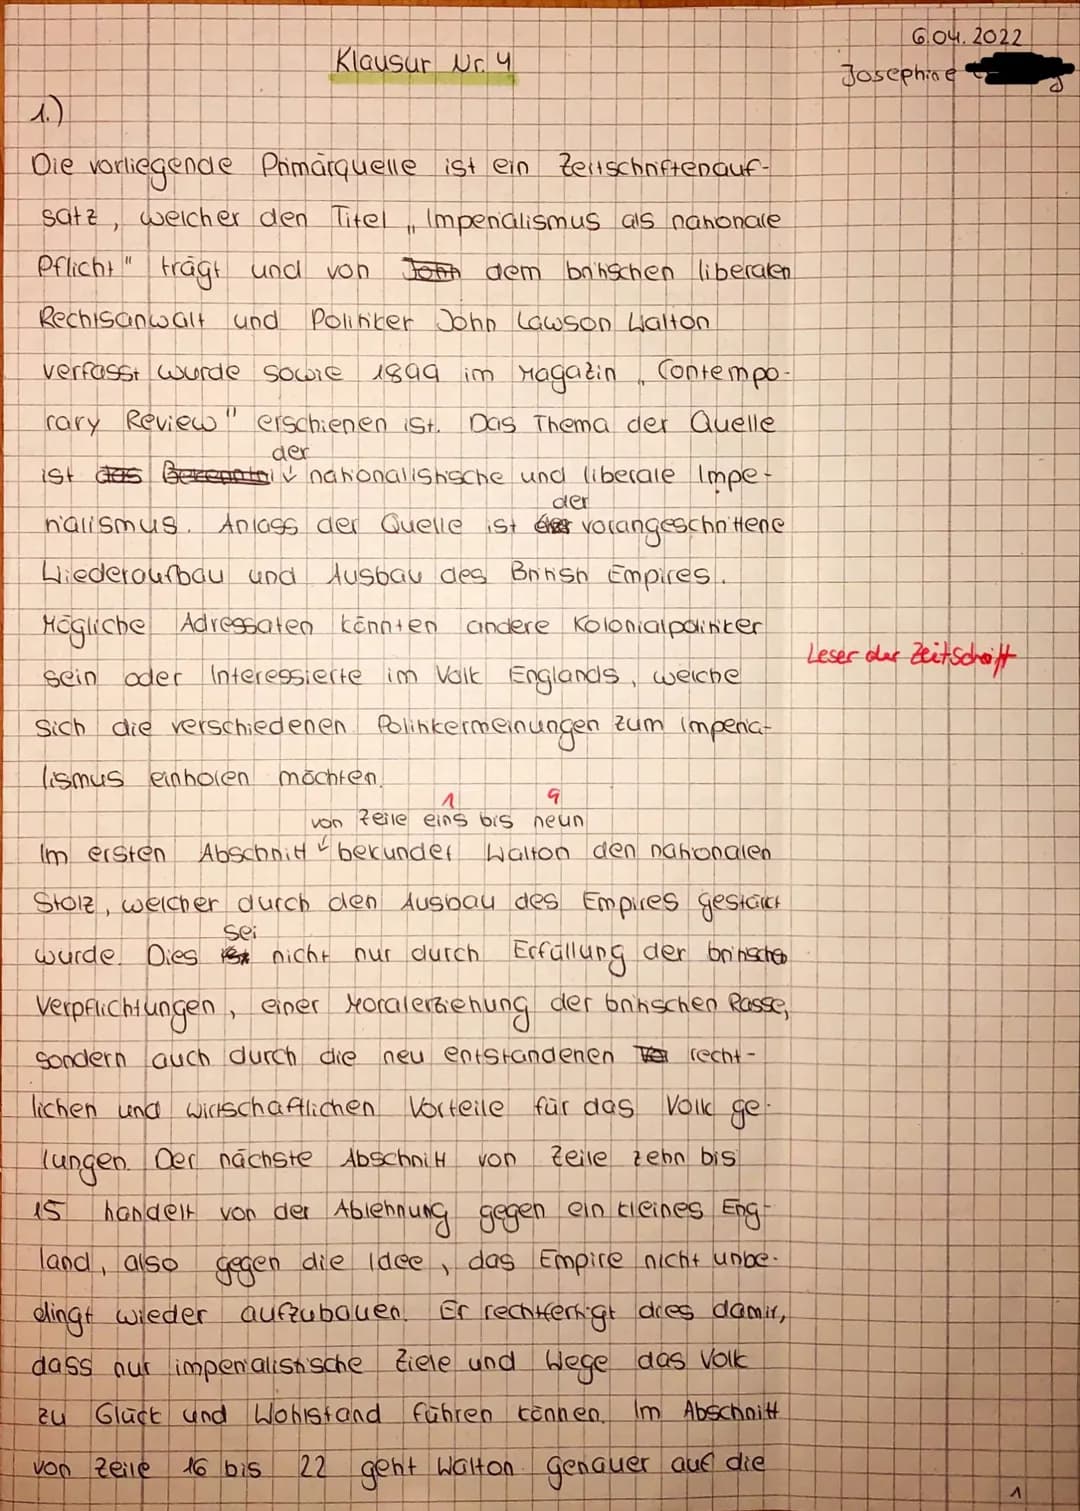 6.04.2022
Klausur Nr. 4
Josephine
1.)
Die vorliegende Primärquelle ist ein Zeitschriftenauf-
satz, welcher den Titel „Imperialismus als nationale
Pflicht" trägt und von John dem britischen liberalen
Rechtsanwalt und Politiker John Lawson Walton
verfasst wurde sowie 1899 im Magazin „Contempo-
rary Review" erschienen ist. Das Thema der Quelle
der
ist das nationalistische und liberale Impe-
der
rialismus. Anlass der Quelle ist der vorangeschrittene
Wiederaufbau und Ausbau des British Empires.
Mögliche Adressaten könnten andere Kolonialpolitiker
Leser der Zeitschrift
sein oder Interessierte im Volk Englands, welche
sich die verschiedenen Politikermeinungen zum Imperia-
lismus einholen möchten.
1 9
von Zeile eins bis neun
Im ersten Abschnitt bekundet Walton den nationalen
Stolz, welcher durch den Ausbau des Empires gestärkt
sei
wurde. Dies ist nicht nur durch Erfüllung der britische
Verpflichtungen, einer Moralerziehung der britischen Rasse,
sondern auch durch die neu entstandenen recht-
lichen und wirtschaftlichen Vorteile für das Volk ge-
lungen. Der nächste Abschnitt von Zeile zehn bis
15 handelt von der Ablehnung gegen ein kleines Eng-
land, also gegen die Idee, das Empire nicht unbe-
dingt wieder aufzubauen. Er rechtfertigt dies damit,
dass nur imperialistische Ziele und Wege das Volk
zu Glück und Wohlstand führen können. Im Abschnitt
von Zeile 16 bis 22 geht Walton genauer auf die
1